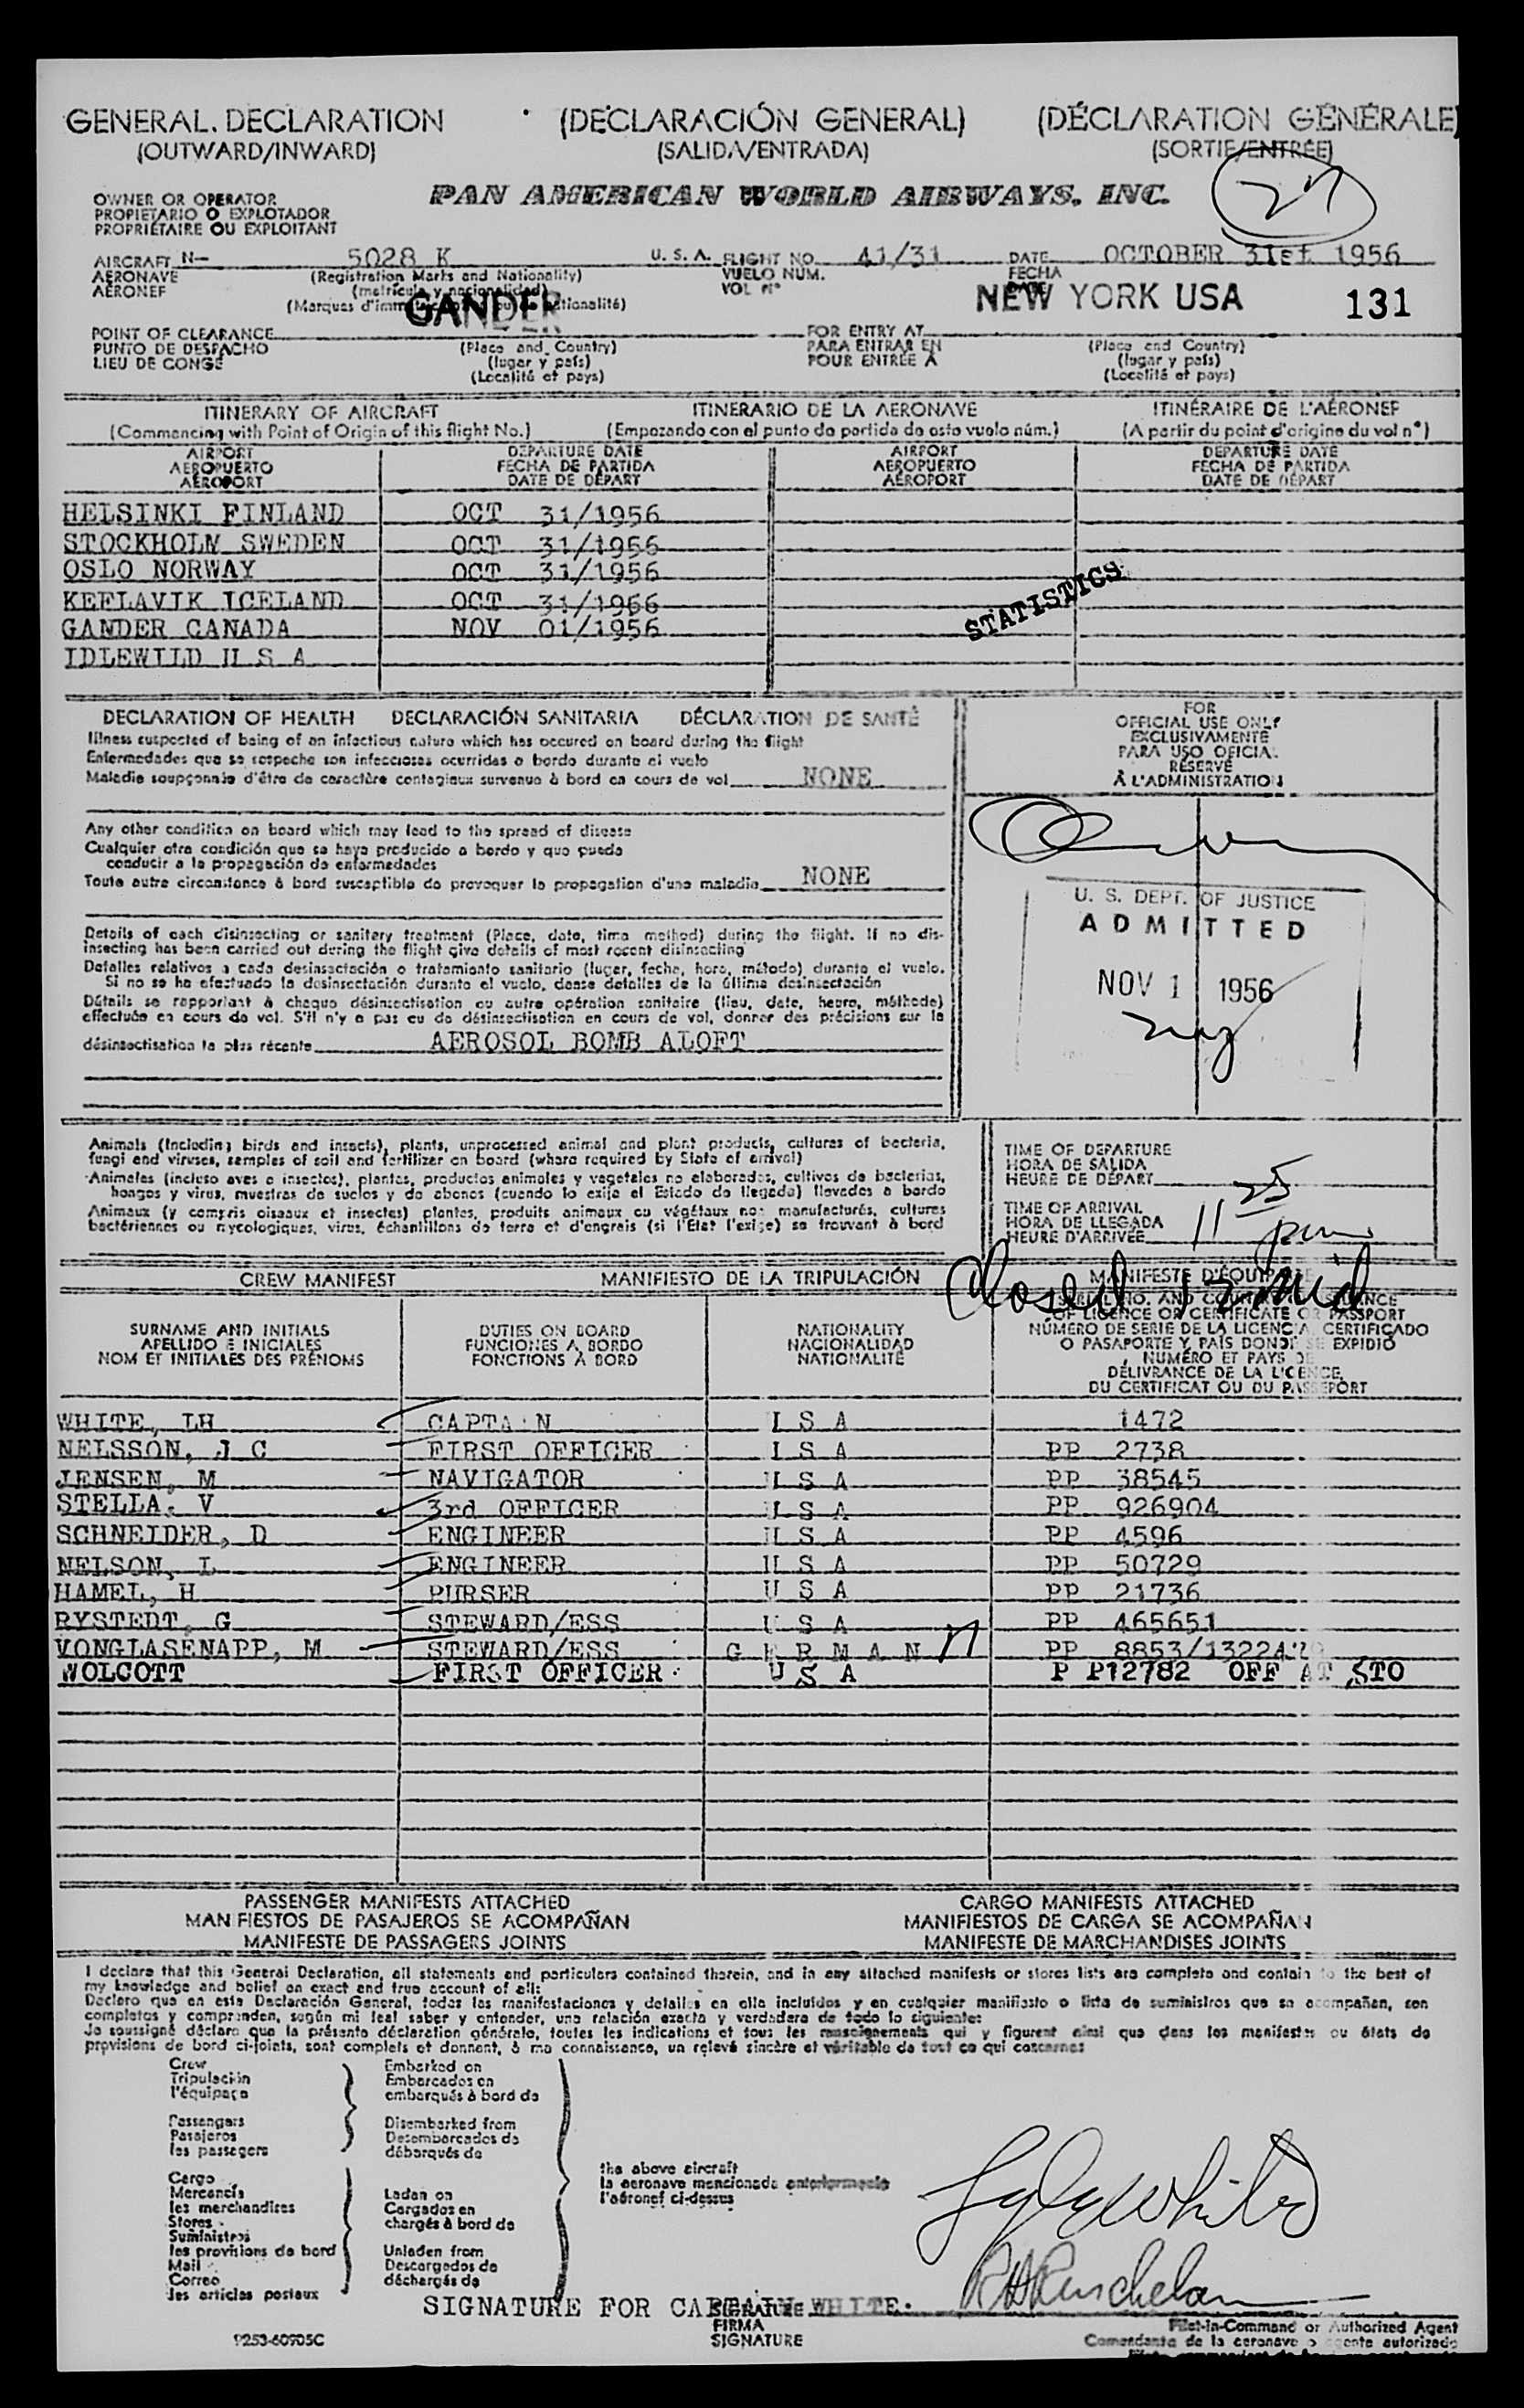 GENERAL DECLARATION (DECLARACIÓN GENERAL) (DÉCLARATION GÉNÉRALE)
(OUTWARD/INWARD) (SALIDA/ENTRADA) (SORTIE/ENTRÉE)
OWNER OR OPERATOR
PROPIETARIO O EXPLOTADOR
PROPRIÉTAIRE OU EXPLOITANT
PAN AMERICAN WORLD AIRWAYS, INC.
AIRCRAFT N- 5028 K U. S. A. FLIGHT NO. 41/31 DATE OCTOBER 31st 1956
AERONAVE (Registration Marks and Nationality) VUELO NÚM. FECHA
AÉRONEF (matrícula y nacionalidad) VOL Nº DATE
GANDER NEW YORK USA 131
POINT OF CLEARANCE FOR ENTRY AT
PUNTO DE DESPACHO (Place and Country) PARA ENTRAR EN (Place and Country)
LIEU DE CONGÉ (lugar y país) POUR ENTRÉE À (lugar y país)
(Localité et pays) (Localité et pays)
ITINERARY OF AIRCRAFT ITINERARIO DE LA AERONAVE ITINÉRAIRE DE L'AÉRONEF
(Commencing with Point of Origin of this flight No.) (Empezando con el punto de partida de este vuelo núm.) (A partir du point d'origine du vol nº)
AIRPORT DEPARTURE DATE AIRPORT DEPARTURE DATE
AEROPUERTO FECHA DE PARTIDA AEROPUERTO FECHA DE PARTIDA
AÉROPORT DATE DE DÉPART AÉROPORT DATE DE DÉPART
HELSINKI FINLAND OCT 31/1956
STOCKHOLM SWEDEN OCT 31/1956
OSLO NORWAY OCT 31/1956
KEFLAVIK ICELAND OCT 31/1956
GANDER CANADA NOV 01/1956
IDLEWILD U S A
STATISTICS
DECLARATION OF HEALTH DECLARACIÓN SANITARIA DÉCLARATION DE SANTÉ
Illness suspected of being of an infectious nature which has occured on board during the flight
Enfermedades que se sospeche son infecciosas ocurridas a bordo durante el vuelo
Maladie soupçonnée d'être de caractère contagieux survenue à bord en cours de vol NONE
Any other condition on board which may lead to the spread of disease
Cualquier otra condición que se haya producido a bordo y que pueda
conducir a la propagación de enfermedades
Toute autre circonstance à bord susceptible de provoquer la propagation d'une maladie NONE
Details of each disinsecting or sanitary treatment (Place, date, time method) during the flight. If no dis-
insecting has been carried out during the flight give details of most recent disinsecting
Detalles relativos a cada desinsectación o tratamiento sanitario (lugar, fecha, hora, método) durante el vuelo.
Si no se ha efectuado la desinsectación durante el vuelo, dense detalles de la última desinsectación
Détails se rapportant à chaque désinsectisation ou autre opération sanitaire (lieu, date, heure, méthode)
effectuée en cours de vol. S'il n'y a pas eu de désinsectisation en cours de vol, donner des précisions sur la
désinsectisation la plus récente AEROSOL BOMB ALOFT
FOR
OFFICIAL USE ONLY
EXCLUSIVAMENTE
PARA USO OFICIAL
RÉSERVÉ
À L'ADMINISTRATION
U. S. DEPT. OF JUSTICE
ADMITTED
NOV 1 1956
Animals (including birds and insects), plants, unprocessed animal and plant products, cultures of bacteria,
fungi and viruses, samples of soil and fertilizer on board (where required by State of arrival)
Animales (incluso aves e insectos), plantas, productos animales y vegetales no elaborados, cultivos de bacterias,
hongos y virus, muestras de suelos y de abonos (cuando lo exija el Estado de llegada) llevados a bordo
Animaux (y compris oiseaux et insectes) plantes, produits animaux ou végétaux non manufacturés, cultures
bactériennes ou mycologiques, virus, échantillons de terre et d'engrais (si l'État l'exige) se trouvant à bord
TIME OF DEPARTURE
HORA DE SALIDA
HEURE DE DÉPART
TIME OF ARRIVAL
HORA DE LLEGADA 11 25 pm
HEURE D'ARRIVÉE
Closed 12 Mid
CREW MANIFEST MANIFIESTO DE LA TRIPULACIÓN MANIFESTE D'ÉQUIPAGE
SURNAME AND INITIALS DUTIES ON BOARD NATIONALITY
APELLIDO E INICIALES FUNCIONES A BORDO NACIONALIDAD
NOM ET INITIALES DES PRÉNOMS FONCTIONS À BORD NATIONALITÉ
OF LICENCE OR CERTIFICATE OR PASSPORT
NÚMERO DE SERIE DE LA LICENCIA, CERTIFICADO
O PASAPORTE Y PAÍS DONDE SE EXPIDIÓ
NUMÉRO ET PAYS DE
DÉLIVRANCE DE LA LICENCE,
DU CERTIFICAT OU DU PASSEPORT
WHITE, LH CAPTAIN U S A 1472
NELSSON, J C FIRST OFFICER U S A PP 2738
JENSEN, M NAVIGATOR U S A PP 38545
STELLA, V 3rd OFFICER U S A PP 926904
SCHNEIDER, D ENGINEER U S A PP 4596
NELSON, L ENGINEER U S A PP 50729
HAMEL, H PURSER U S A PP 21736
RYSTEDT, G STEWARD/ESS U S A PP 465651
VONGLASENAPP, M STEWARD/ESS G E R M A N PP
WOLCOTT FIRST OFFICER U S A P P12782 OFF AT STO
PASSENGER MANIFESTS ATTACHED CARGO MANIFESTS ATTACHED
MANIFIESTOS DE PASAJEROS SE ACOMPAÑAN MANIFIESTOS DE CARGA SE ACOMPAÑAN
MANIFESTE DE PASSAGERS JOINTS MANIFESTE DE MARCHANDISES JOINTS
I declare that this General Declaration, all statements and particulars contained therein, and in any attached manifests or stores lists are complete and contain to the best of
my knowledge and belief an exact and true account of all:
Declaro que en esta Declaración General, todas las manifestaciones y detalles en ella incluidos y en cualquier manifiesto o lista de suministros que se acompañan, son
completos y comprenden, según mi leal saber y entender, una relación exacta y verdadera de todo lo siguiente:
Je soussigné déclare que la présente déclaration générale, toutes les indications et tous les renseignements qui y figurent ainsi que dans les manifestes ou états de
provisions de bord ci-joints, sont complets et donnent, à ma connaissance, un relevé sincère et véritable de tout ce qui concerne:
Crew Embarked on
Tripulación Embarcados en
l'équipage embarqués à bord de
Passengers Disembarked from
Pasajeros Desembarcados de
les passagers débarqués de
the above aircraft
la aeronave mencionada anteriormente
l'aéronef ci-dessus
Cargo
Mercancía Laden on
les marchandises Cargados en
Stores chargés à bord de
Suministros
les provisions de bord Unladen from
Mail Descargados de
Correo déchargés de
les articles postaux
SIGNATURE FOR CAPTAIN WHITE.
SIGNATURE
FIRMA
SIGNATURE
9253-60905C
Pilot-in-Command or Authorized Agent
Comandante de la aeronave o agente autorizado